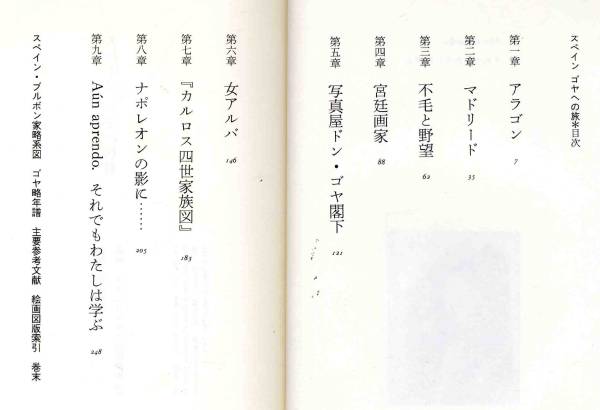 スペイン ゴヤへの旅＊目次
第一章 アラゴン 7
第二章 マドリード 35
第三章 不毛と野望 62
第四章 宮廷画家 88
第五章 写真屋ドン・ゴヤ閣下 121
第六章 女アルバ 146
第七章 『カルロス四世家族図』 183
第八章 ナポレオンの影に…… 205
第九章 Aún aprendo. それでもわたしは学ぶ 248
スペイン・ブルボン家略系図 ゴヤ略年譜 主要参考文献 絵画図版索引 巻末